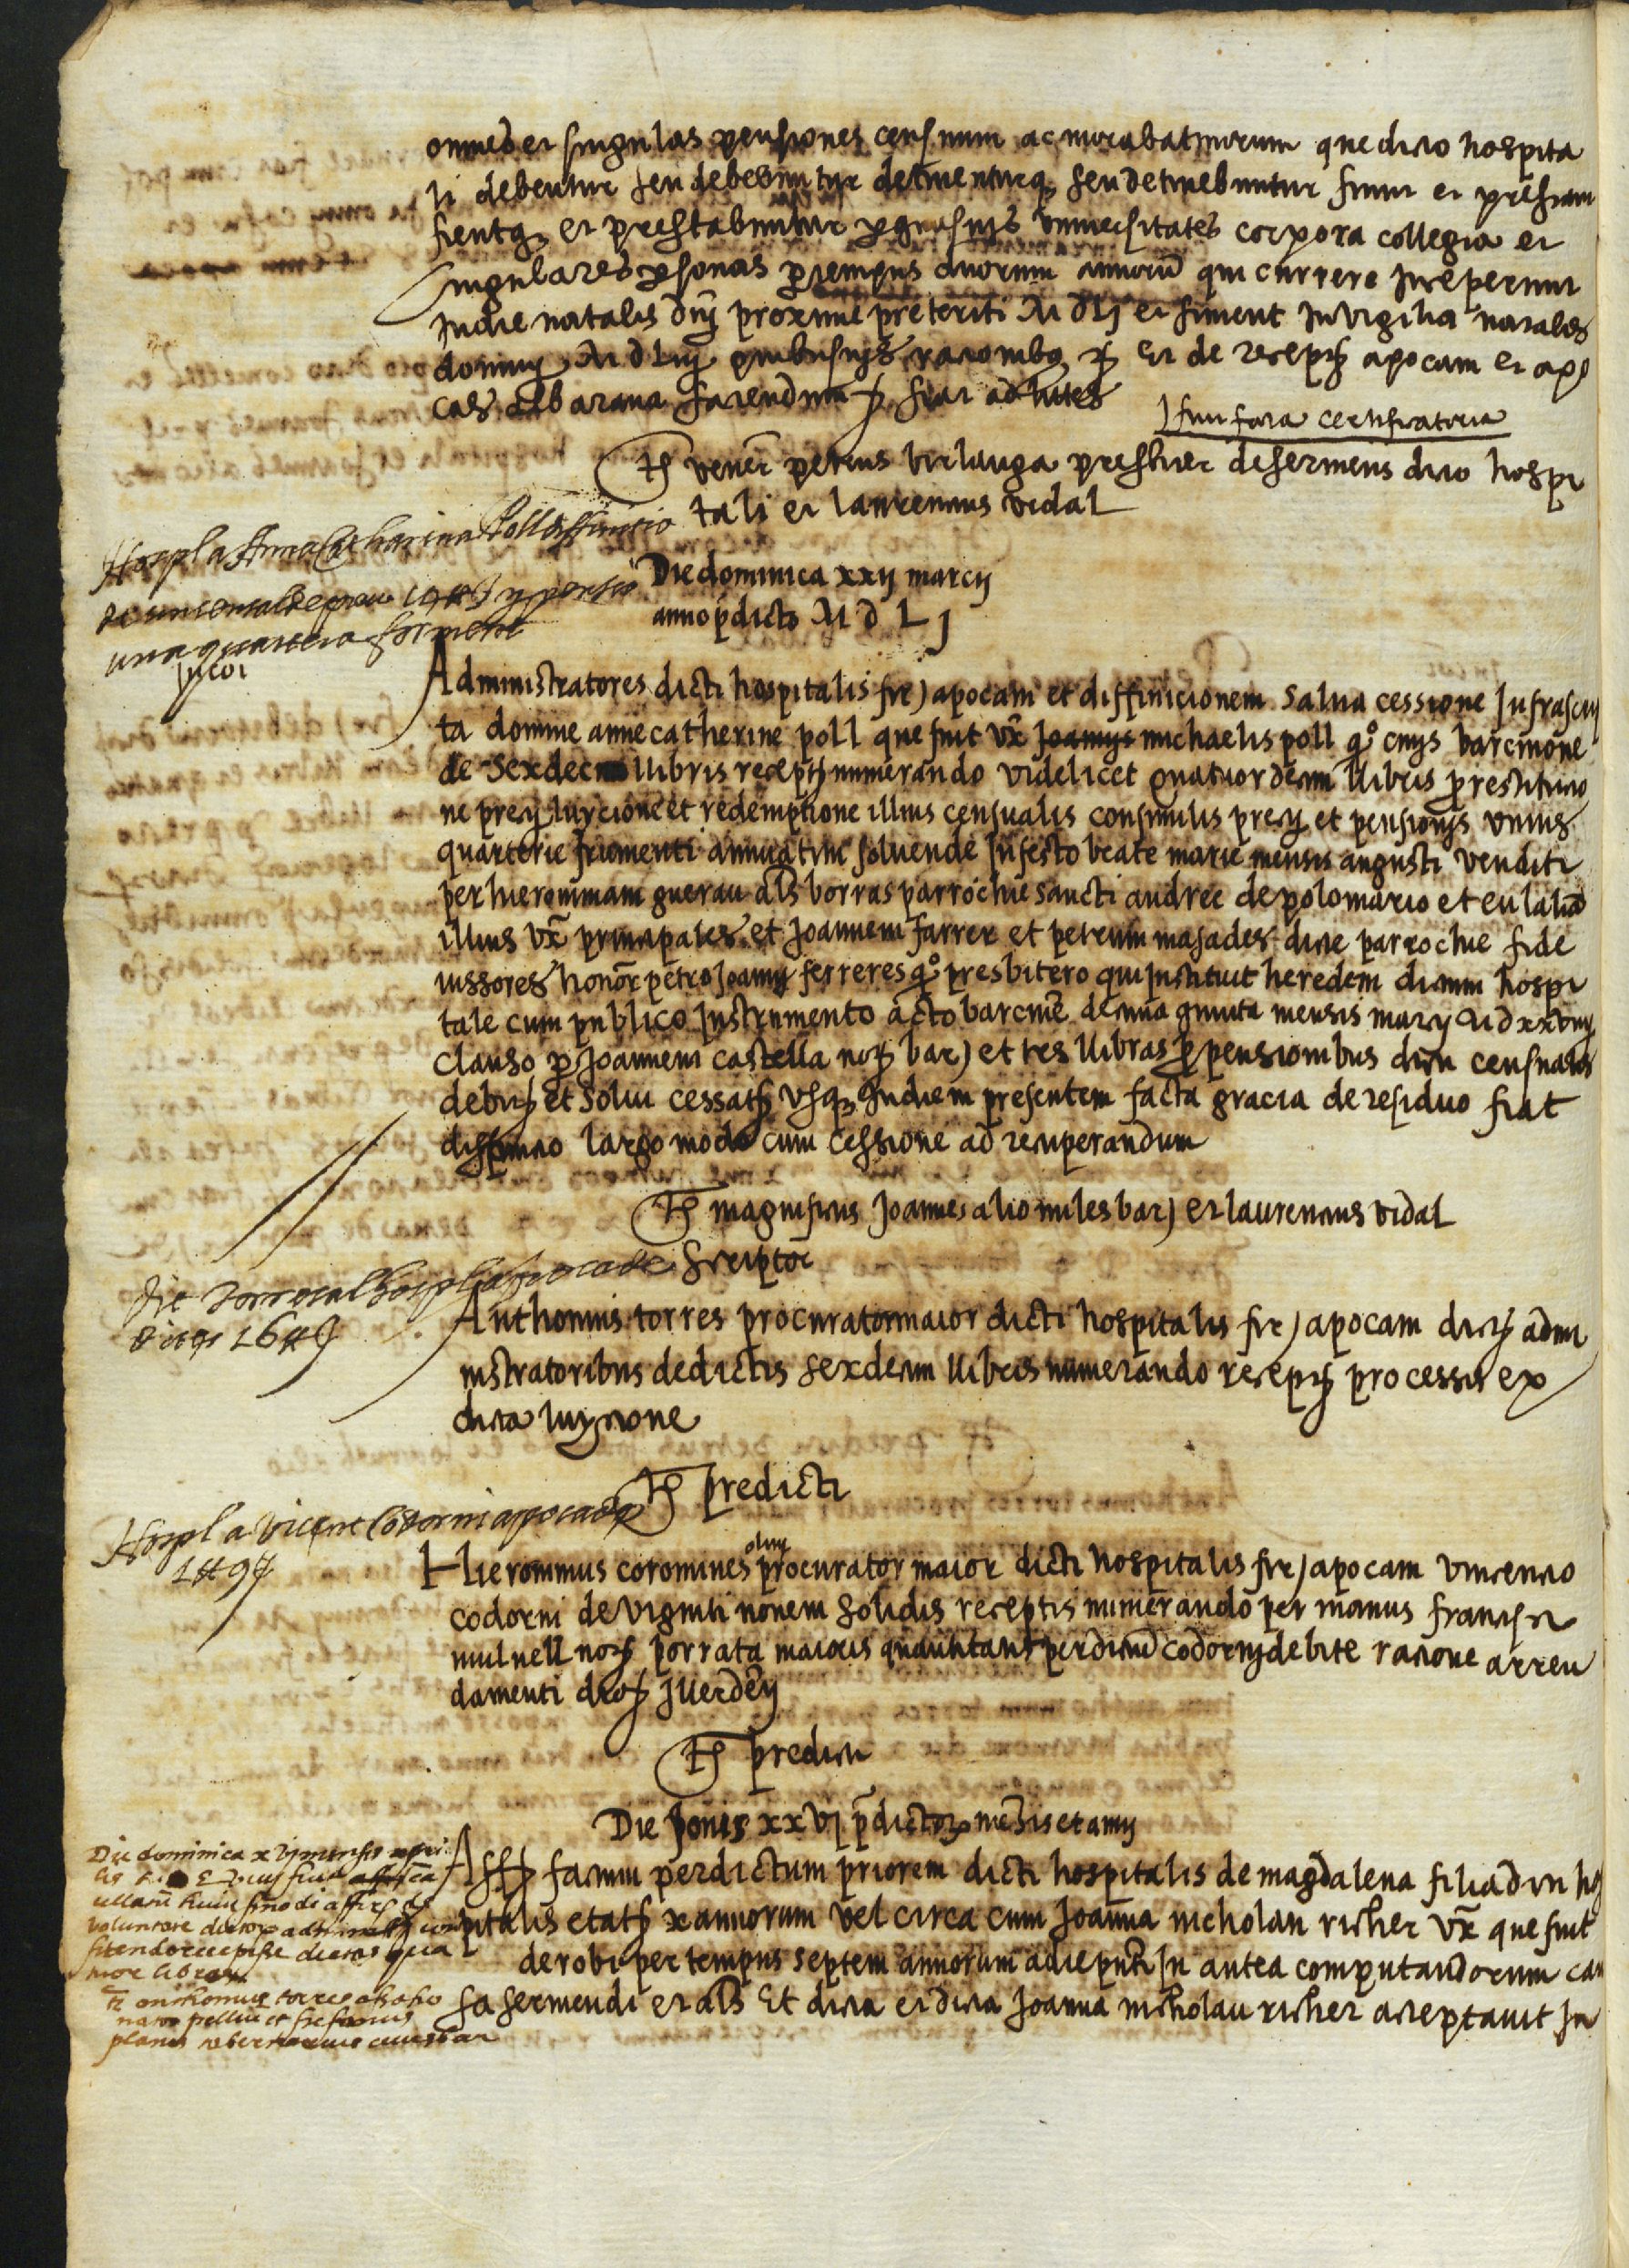 omnes et singulas pensiones censuum ac morabatinorum que dicto hospita
li debentur seu debebuntur detinenturq seu detinebuntur fiunt et prestan
fientq et prestabuntur per quasvis universitates corpora collegia et
singulares personas per tempus duorum annorum qui currere inceperunt
in die natalis dnj proxime preteriti M d Lj et finient in vigilia natalis
dominj M d Liij quibusvis racionibus et de receptis apocam et apo
cas albarana faciendum fiat ad lites
fuit facta certificatoria
Ts vener petrus virlauga presbiter deserviens dicto hospi
tali et laurencius vidal
Hospl a Anna Catharina Poll diffinitio
de un censal de preu
una quartera forment
Die dominica xxij marcij
anno predicto M d L j
Administratores dicti hospitalis fir) apocam et diffinicionem salva cessione infrascrip
ta domine anne catherine poll que fuit vx joannis michaelis poll qo civis barcinone
de sexdecim llibris receptis numerando videlicet quatuordecim llibris pro restitucio
ne precij luycione et redemptione illius censualis consimilis precij et pensionis unius
quarterie frumenti annuatim solvende in festo beate marie mensis augusti venditi
per hieronimam guerau als borras parrochie sancti andree de polomario et eulalia
illius vx principales et joannem farrer et petrum masades dicte parrochie fide
iussores honor petro joannj ferreres qo presbitero qui instituit heredem dictum hospi
tale cum publico instrumento acto barcine decima quinta mensis marcij M d xxviiij
clauso per joannem castella not bar) et tres llibras pro pensionibus dicti censualis
debitis et solvi cessatis usq in diem presentem facta gracia de residuo fiat
diffinicio largo modo cum cessione ad recuperandum
Ts magnificus joannes alio miles bar) et laurencius vidal
scriptor
Anthonius torres procurator maior dicti hospitalis fir) apocam dictis admi
nistratoribus de dictis sexdecim llibris numerando receptis processis ex
dicta luycione
Ts predicti
Hospl a Vicent Codorni apocade
1 ll 9 s
Hieronimus coromines olim procurator maior dicti hospitalis fir) apocam vincencio
codorni de viginti novem solidis receptis numerando per manus francisci
mulnell not porrata maioris quantitatis per dictum codornj debite racione arren
damenti
Ts predicti
Die Jovis xxvj predictor mensis et annj
Asst factum per dictum priorem dicti hospitalis de magdalena filia dicti hos
pitalis etatis x annorum vel circa cum joanna nicholau richer vx que fuit
de robi per tempus septem annorum a die presenti in antea computandorum cau
sa serviendi et als Et dicta et dicta joanna nicholau richer acceptavit
Die dominica xvj mensis apri
voluntate dictor
fitendo recepisse dictas qua
tuor libras
Ts anthonius torres